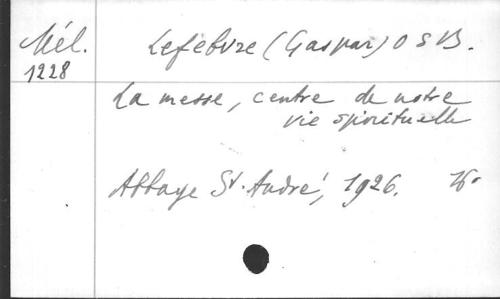 Mél.
1228
Lefebvre (Gaspar) O S B.
La messe, centre de notre
vie spirituelle
Abbaye St. André, 1926.